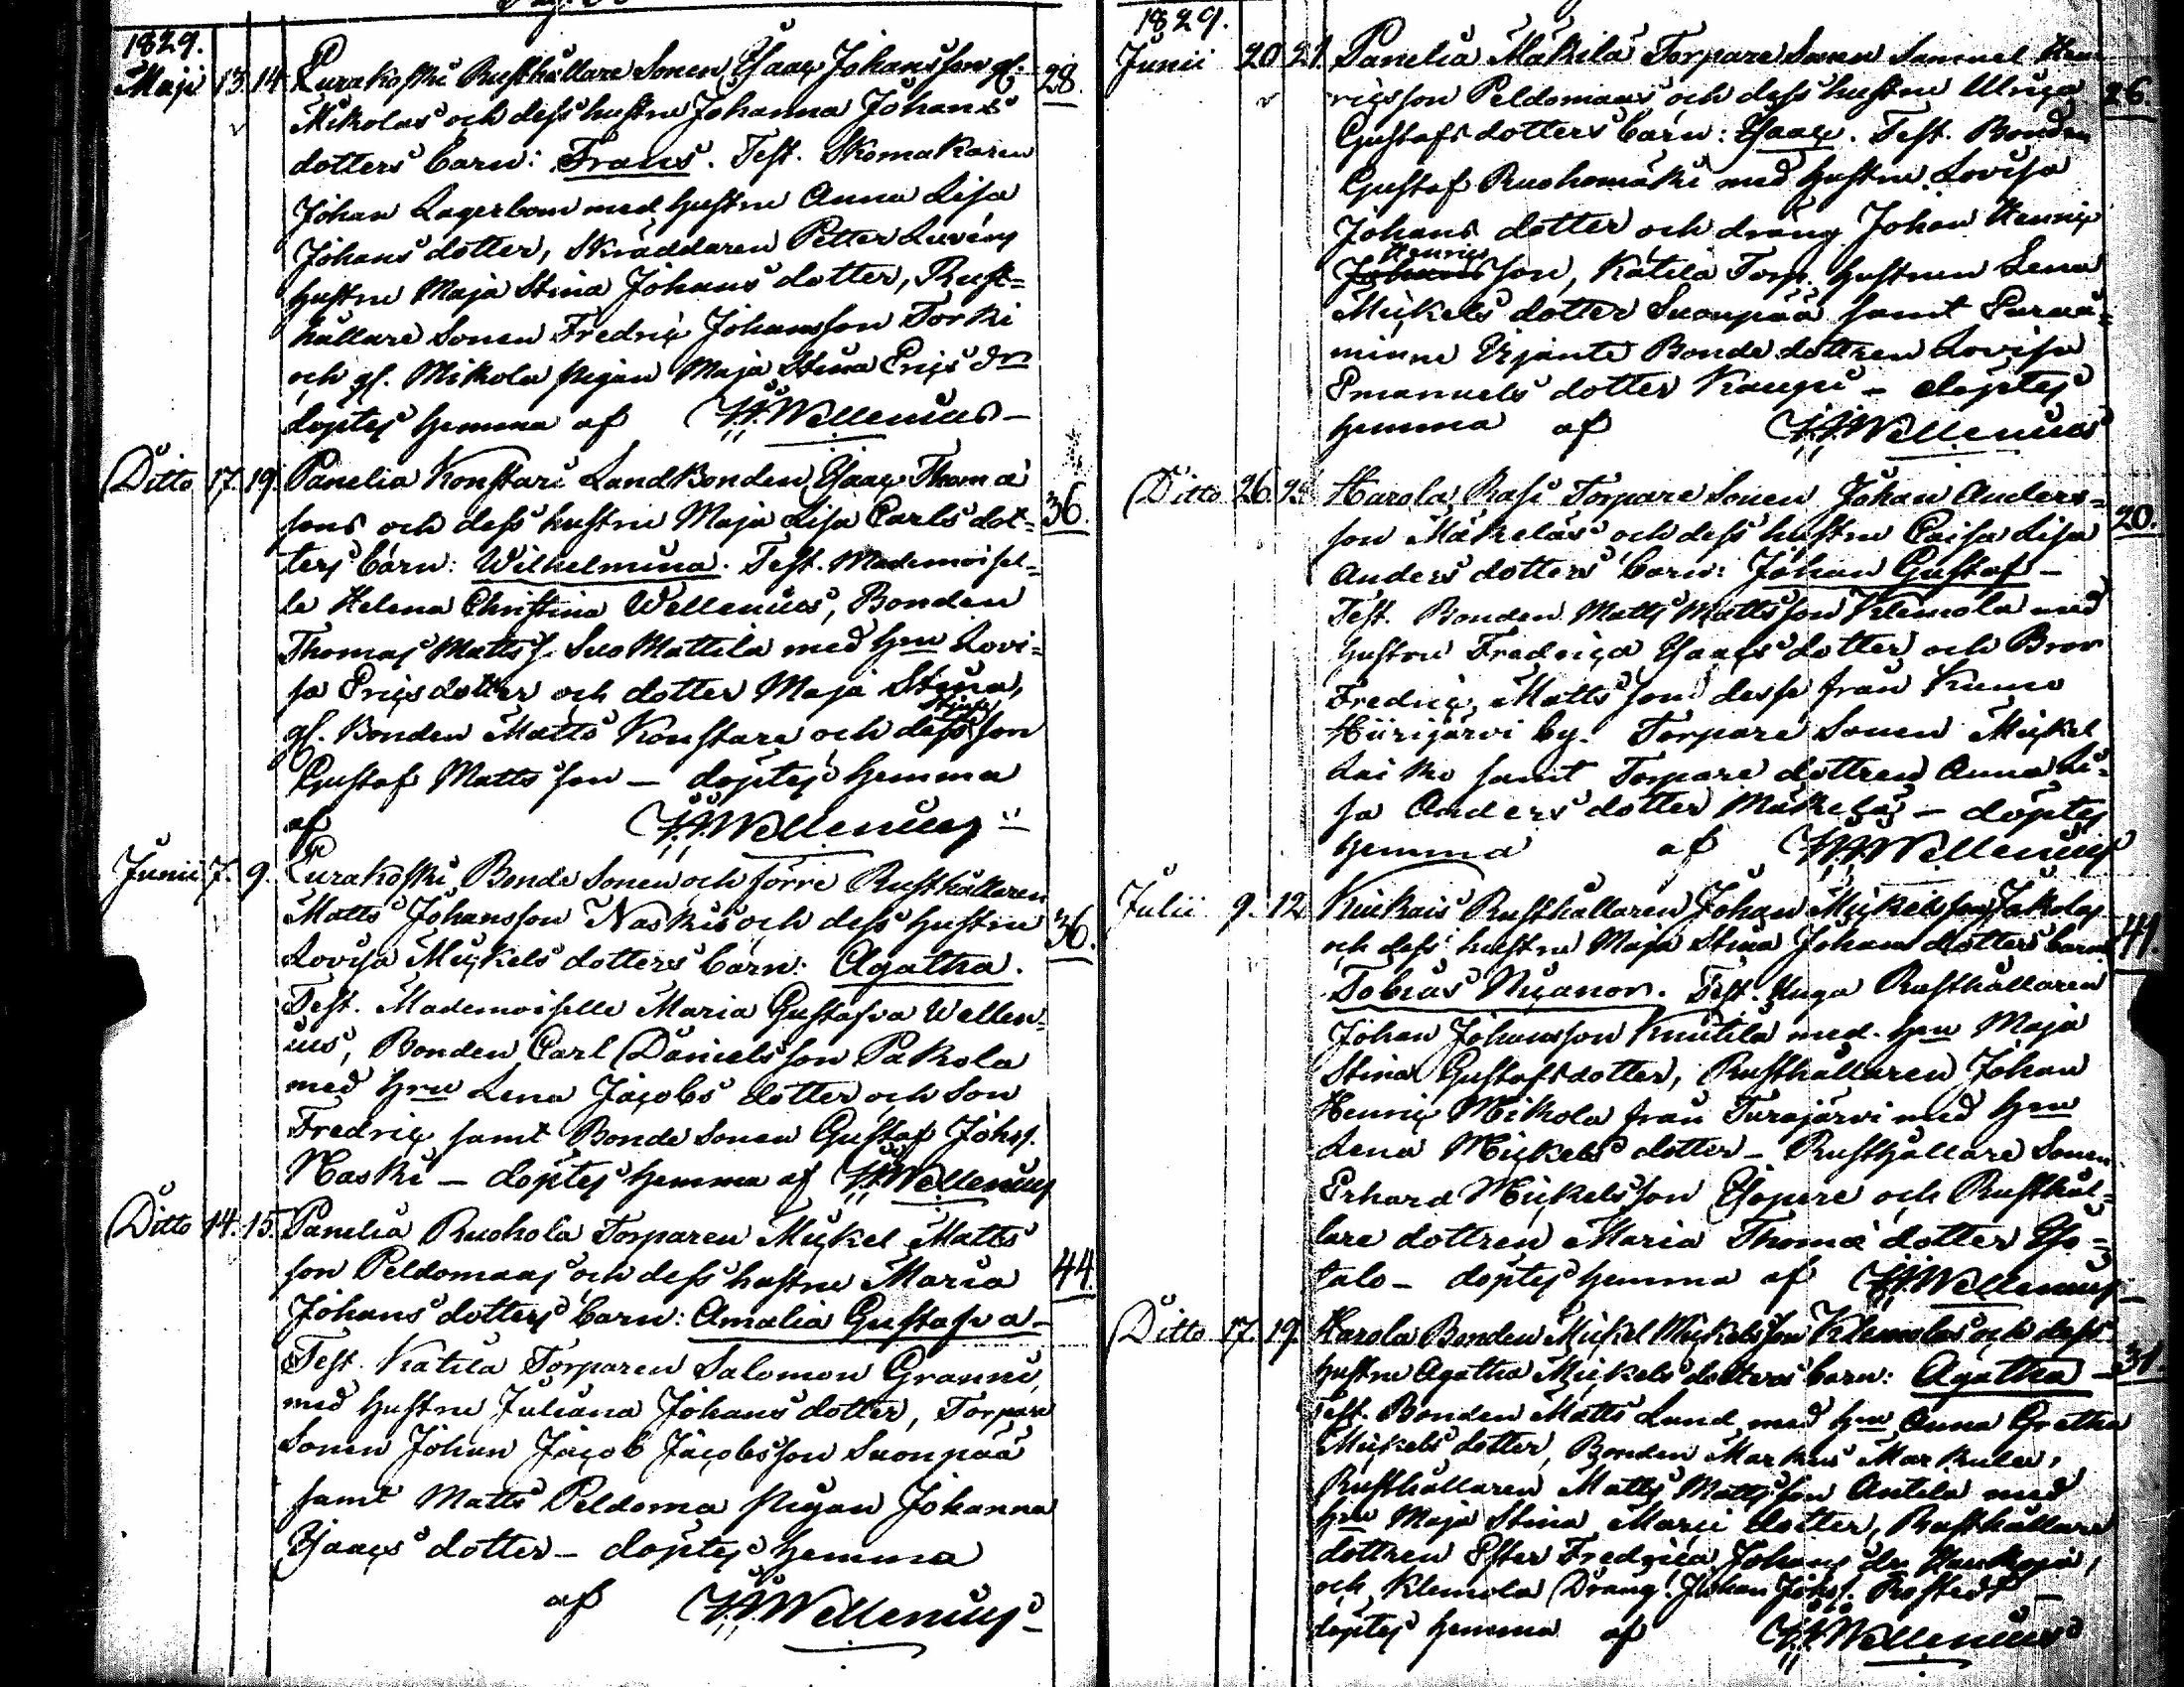 1829.
Maji 13. 14. Eurakoski Rusthållare Sonen Isaac Johansson gl. 28.
Mikolas och dess hustru Johanna Johans
dotters barn: Frans. Test. Skomakaren
Johan Lagerbom med hustru Anna Lisa
Johans dotter, Skräddaren Petter Luvens
hustru Maja Stina Johans dotter, Rust=
hållare Sonen Fredric Johansson Torki
och gl. Mikola pigan Maja Stina Erics dr
döptes hemma af Wellenius
Ditto 17. 19. Panelia Konstari Landbonden Isaac Thomæ
sons och dess hustru Maja Lisa Carls dot= 36.
ters barn: Wilhelmina. Test. Mademoisel=
le Helena Christina Wellenius, Bonden
Thomas Matts s. Suo Mattila med hru Lovi=
sa Ericsdotter och dotter Maja Stina,
gl. Bonden Matts Konstare och dess son
Gustaf Matts son — döptes hemma
af Wellenius
Junii 7. 9. Eurakoski Bonde Sonen och förre Rusthållaren
Matts Johansson Naskis och dess hustru 36.
Lovisa Mickels dotters barn: Agatha.
Test. Mademoiselle Maria Gustafva Wellen=
ius, Bonden Carl Daniels son Pakola
med hru Lena Jacobs dotter och son
Fredric samt Bonde Sonen Gustaf Johss.
Naski — döptes hemma af Wellenius
Ditto 14. 15. Panelia Ruohola Torparen Mickel Matts
son Peldomaas och dess hustru Maria 44.
Johans dotters barn: Amalia Gustafva —
Test. Katila Torparen Salomon Granni
med hustru Juliana Johans dotter, Torpare
Sonen Johan Jacob Jacobsson Suonpää
samt Matts Peldoma pigan Johanna
Isaacs dotter — döptes hemma
af Wellenius
1829.
Junii 20 21. Panelia Mäkilä Torpare Sonen Samuel Hen
ricsson Peldomaas och dess hustru Ulrica 26.
Gustafs dotters barn: Isaac. Test. Bonden
Gustaf Ruohomäki med hustru Lovisa
Johans dotter och dräng Johan Henric
Henrics
son, Katila Torp. hustrun Lena
Mickels dotter Suonpää samt
Bonde dottren Lovisa
Emanuels dotter Kaupi — döptes
hemma af Wellenius
Ditto 26. Harola, Rasi Torpare Sonen Johan Anders=
son Mäkeläs och dess hustru Caisa Lisa 20.
Anders dotters barn: Johan Gustaf —
Test. Bonden Matts Matts son Klemola med
hustru Fredrica Isaacs dotter och Bror
Fredric Matts son desse från Kumo
Hiirijärvi by. Torpare Sonen Mickel
Laiko samt Torpare dottren Anna Li=
sa Anders dotter Mäkelä — döptes
hemma af Wellenius
Julii 9. 12 Kiukais Rusthållaren Johan Mickelsson Jakolas
och dess hustru Maja Stina Johans dotters barn 41.
Tobias Nicanor. Test. Unga Rusthållaren
Johan Johansson Knutila med hru Maja
Stina Gustafsdotter, Rusthållaren Johan
Henric Mikola från Turajärvi med hru
Lena Mickels dotter — Rusthållare Sonen
Erhard Mickels son och Rusthål=
lare dottren Maria Thomæ dotter Iso=
talo — döptes hemma af Wellenius
Ditto 17. 19. Harola Bonden Mickel Mickelsson Klemolas och dess
hustru Agatha Mickels dotters barn: Agatha — 31.
Test. Bonden Matts Lund med hru Anna Gretha
Mickels dotter, Bonden Markus Markula,
Rusthållaren Matts Matts son Antila med
hru Maja Stina Marci dotter, Rusthållare
dottren Ester Fredrica Johans dr
och Klemola Dräng: Johan Johss. Rostedt —
döptes hemma af Wellenius